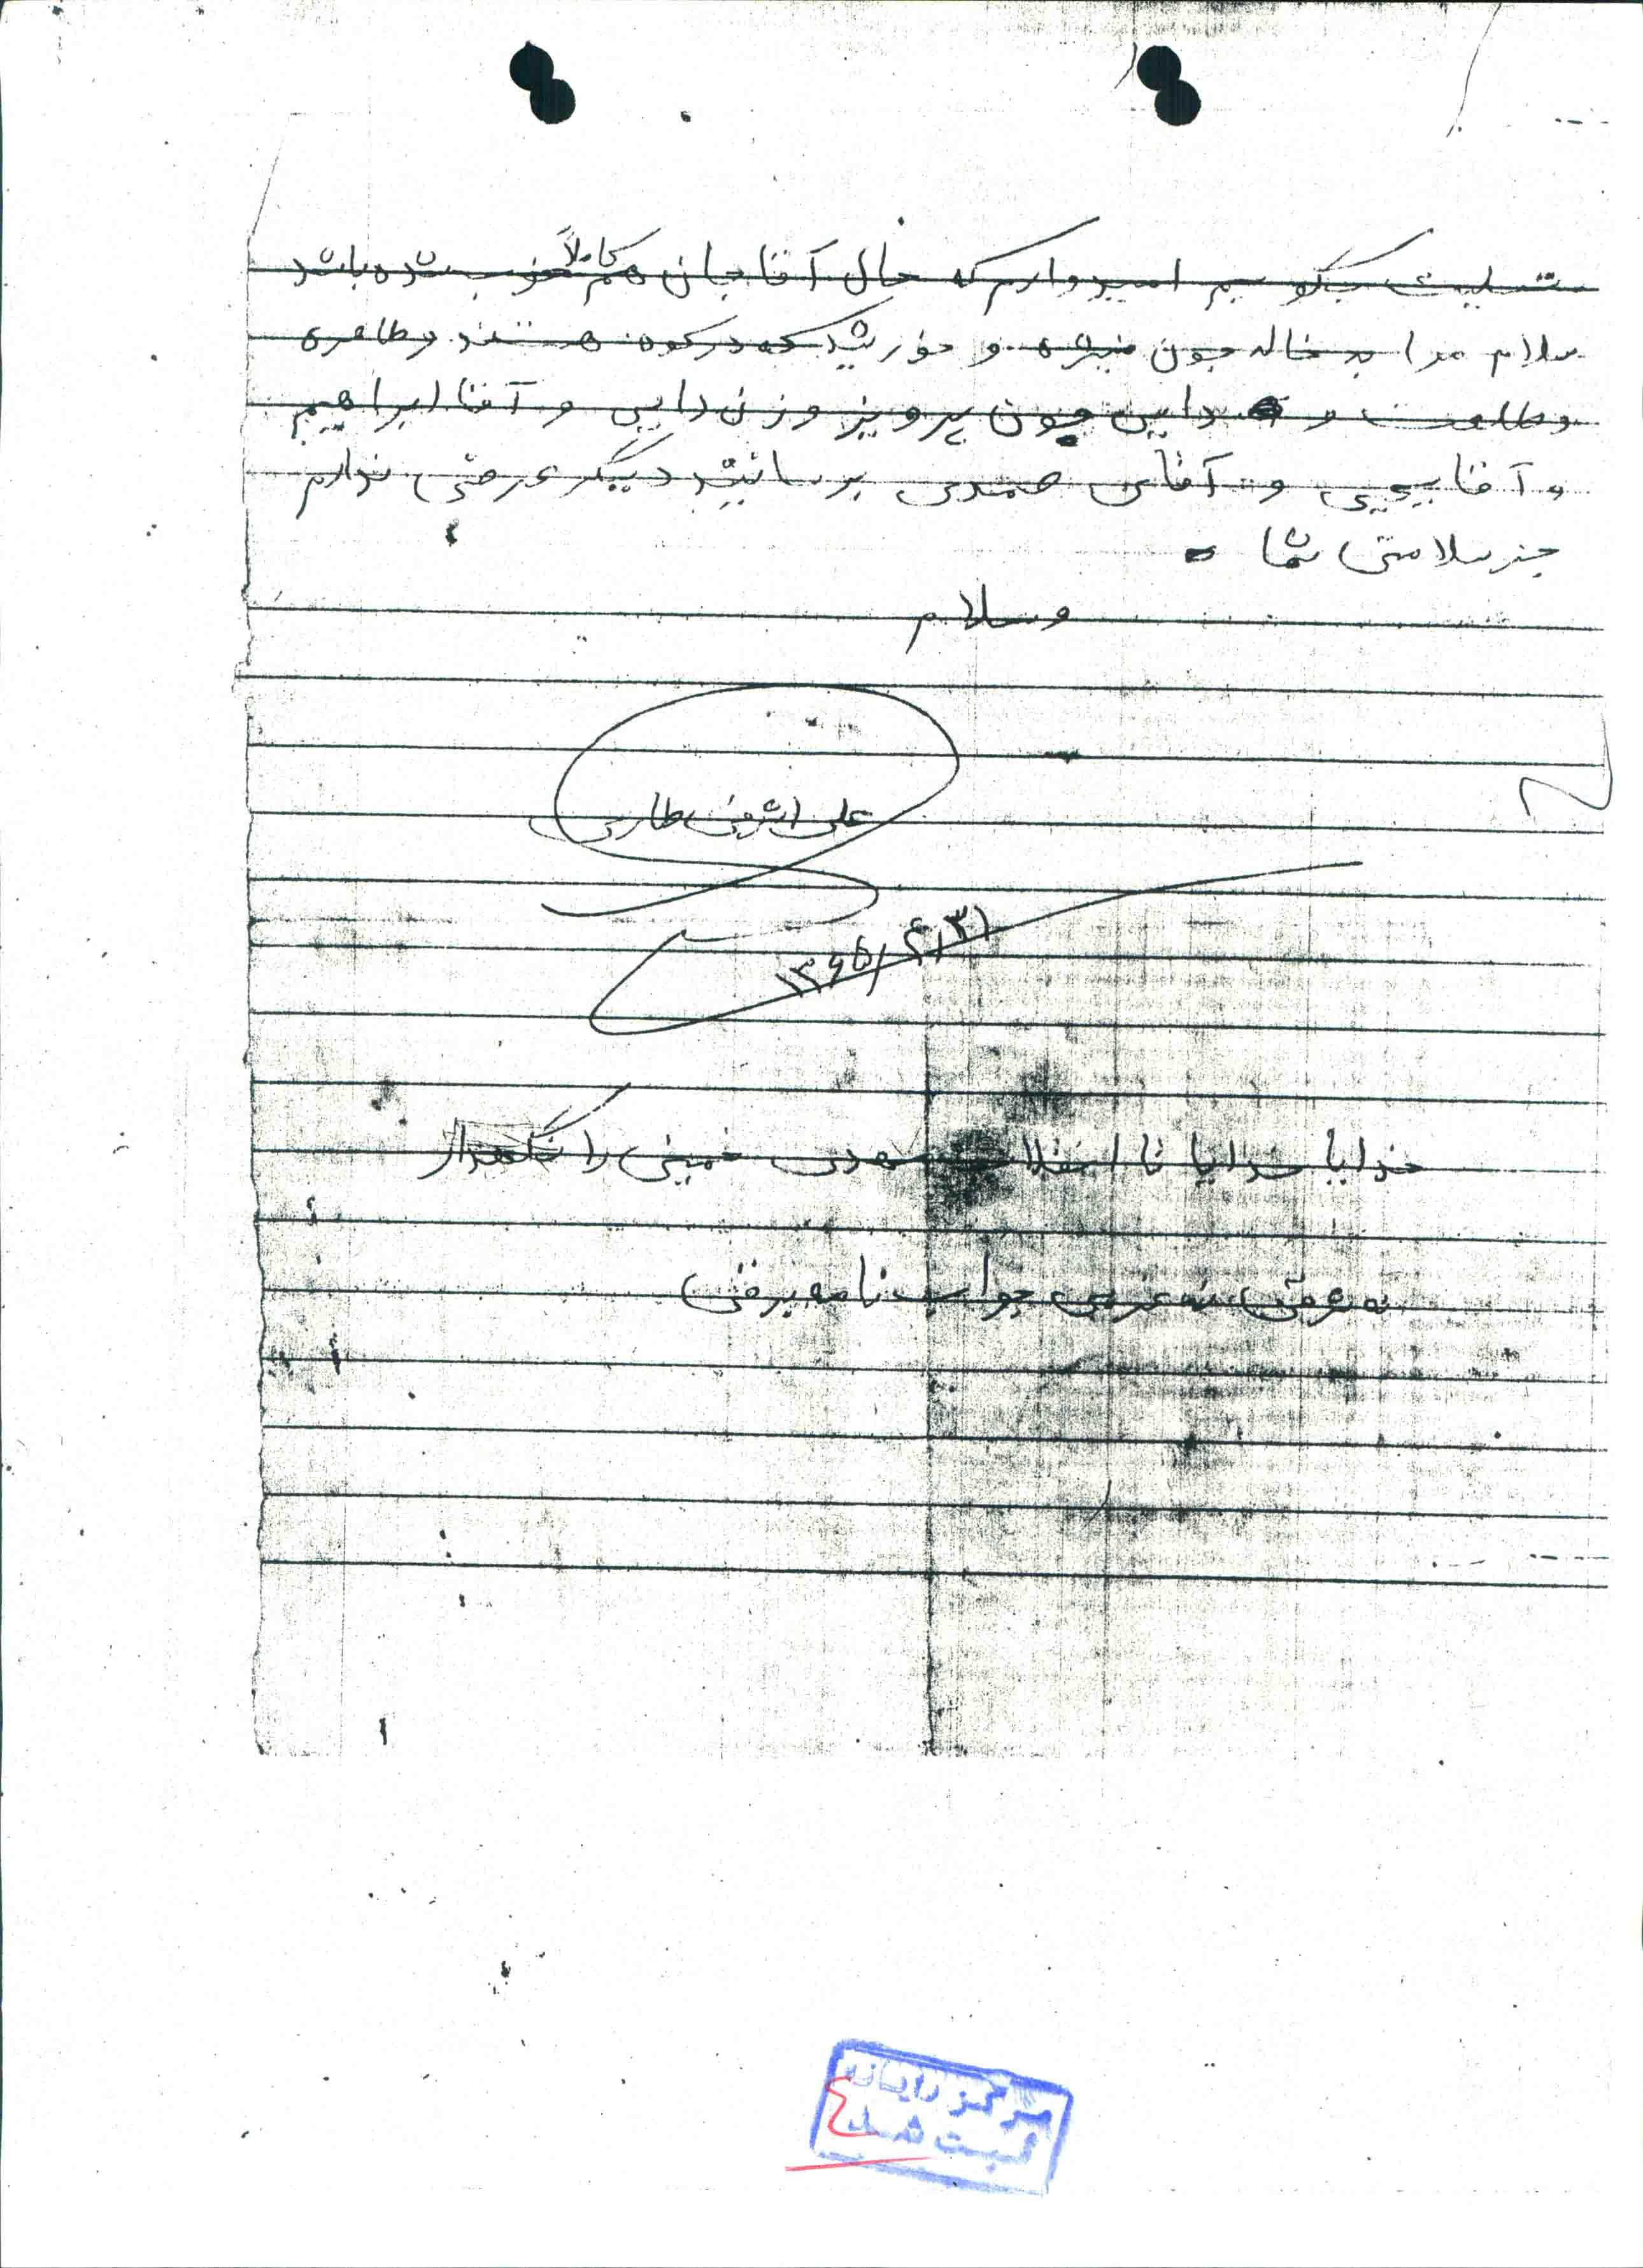 تسلیت بگویم امیدوارم که حال آقاجان هم کاملاً خوب شده باشد
سلام مرا به خاله جون منیره و خورشید که در کوه هستند و طاهره
و طلعت و دایی جون پرویز و زن دایی و آقا ابراهیم
و آقا یحیی و آقای صمدی برسانید دیگر عرضی ندارم
جز سلامتی شما
وسلام
علی اشرفی طاری
۱۳۶۵/۴/۳۱
خدایا خدایا تا انقلاب مهدی خمینی را نگهدار
به عرضی نه عرضی جواب نامه برفتی
مرکز رایانه
ثبت شد